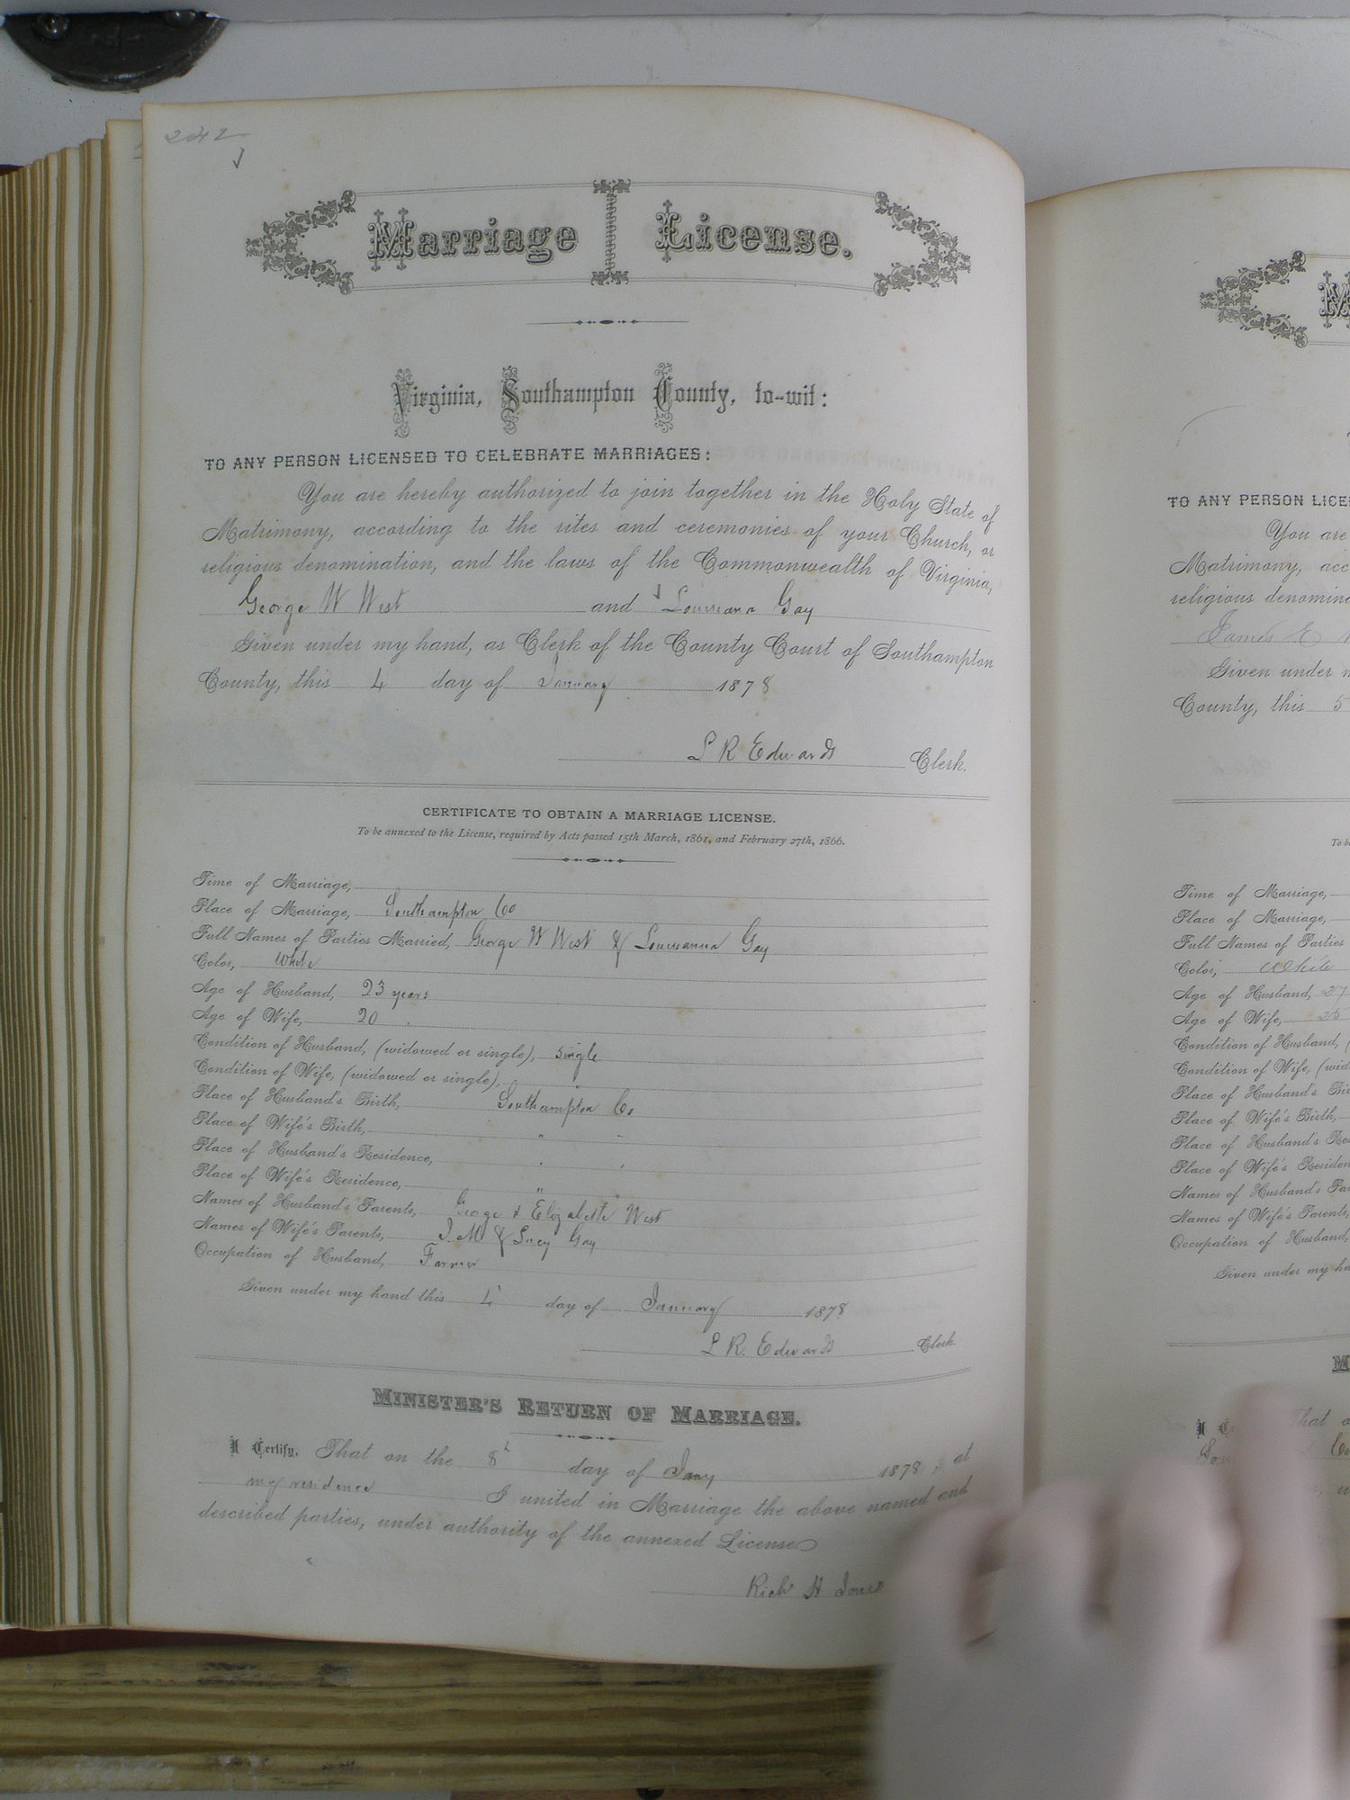 242
Marriage License.
Virginia, Southampton County, to-wit:
TO ANY PERSON LICENSED TO CELEBRATE MARRIAGES:
You are hereby authorized to join together in the Holy State of
Matrimony, according to the rites and ceremonies of your Church, or
religious denomination, and the laws of the Commonwealth of Virginia,
George W West and Louisiana Gay
Given under my hand, as Clerk of the County Court of Southampton
County, this 4 day of January 1878
L R Edwards Clerk.
CERTIFICATE TO OBTAIN A MARRIAGE LICENSE.
To be annexed to the License, required by Acts passed 15th March, 1861, and February 27th, 1866.
Time of Marriage,
Place of Marriage, Southampton Co
Full Names of Parties Married, George W West & Louisianna Gay
Color, White
Age of Husband, 23 years
Age of Wife, 20 "
Condition of Husband, (widowed or single), single
Condition of Wife, (widowed or single), "
Place of Husband's Birth, Southampton Co
Place of Wife's Birth, " "
Place of Husband's Residence, " "
Place of Wife's Residence, " "
Names of Husband's Parents, George & Elizabeth West
Names of Wife's Parents, J. M & Lucy Gay
Occupation of Husband, Farmer
Given under my hand this 4 day of January 1878
L R. Edwards Clerk.
MINISTER'S RETURN OF MARRIAGE.
I Certify, That on the 8 day of Jany 1878, at
my residence I united in Marriage the above named and
described parties, under authority of the annexed License
Rich H Jones
TO ANY PERSON LICE
You are
Matrimony, acc
religious denomin
James E
Given under
County, this 5
Time of Marriage,
Place of Marriage,
Full Names of Parties
Color, White
Age of Husband, 27
Age of Wife, 25
Condition of Husband, (
Condition of Wife, (wid
Place of Husband's Bi
Place of Wife's Birth,
Place of Husband's Res
Place of Wife's Residen
Names of Husband's Pa
Names of Wife's Parents,
Occupation of Husband,
Given under my ha